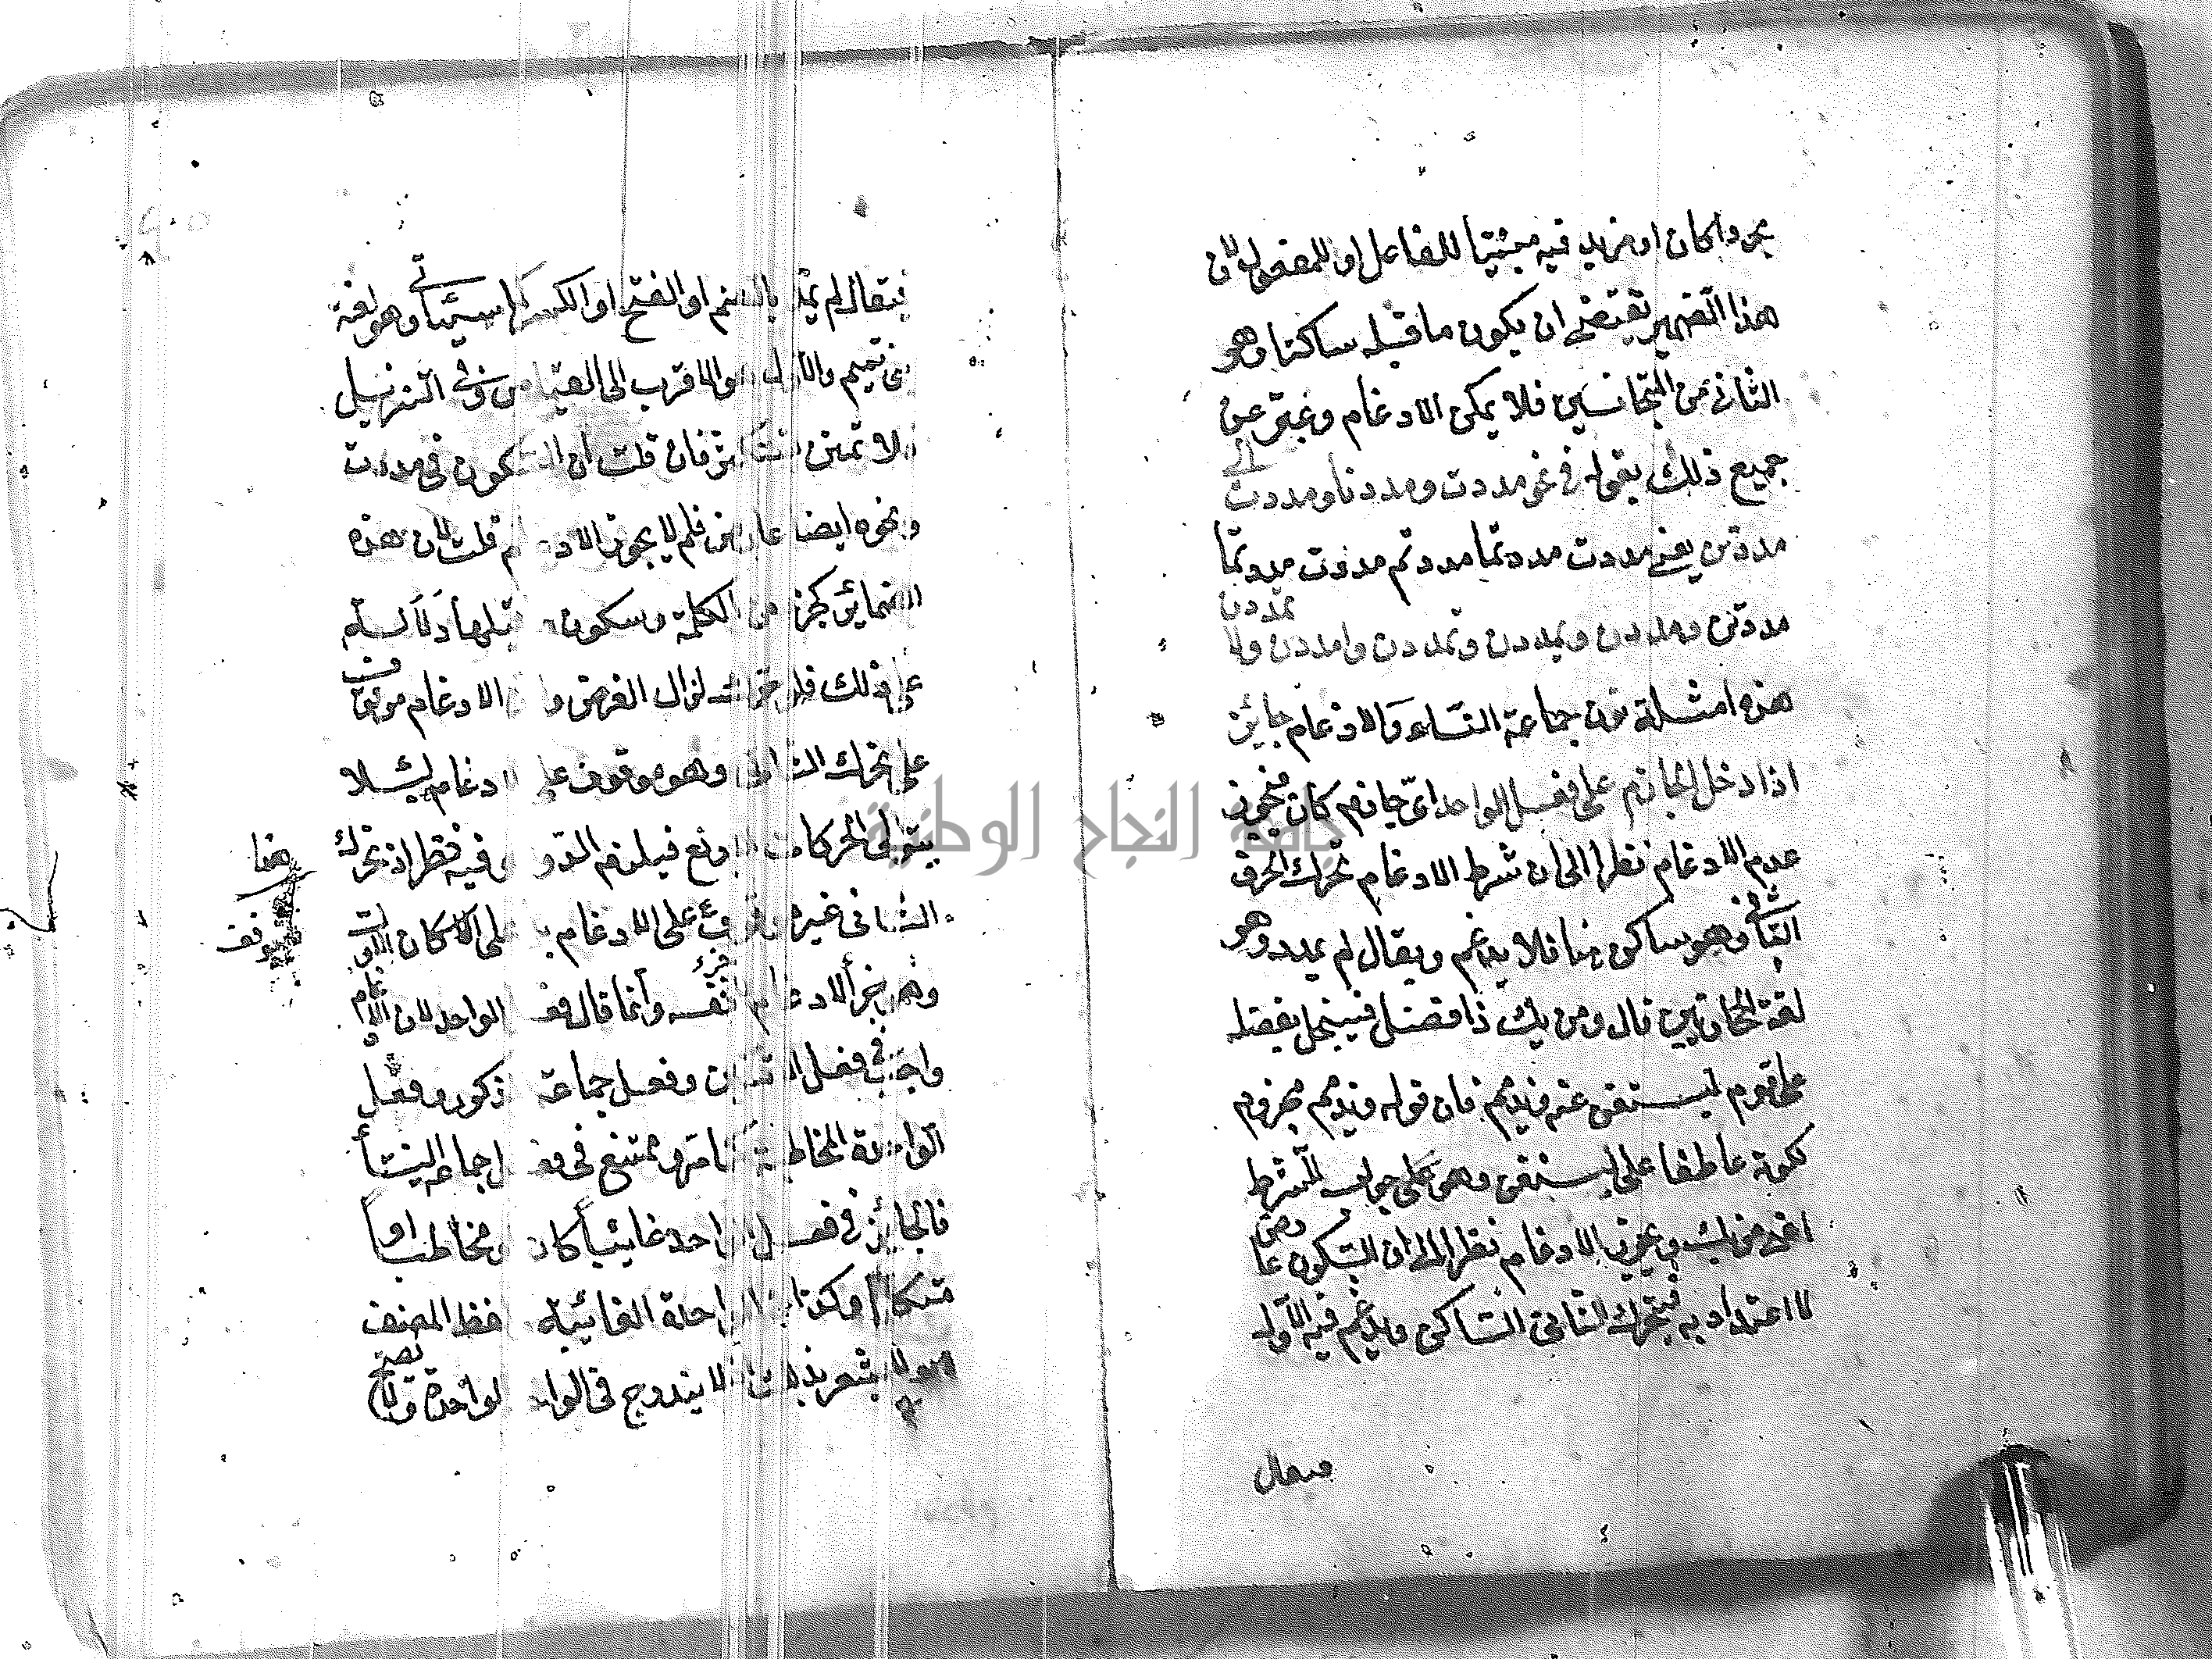 مجردا كان او مزيد فيه مبنيا للفاعل او للمفعول لان
هذا الضمير تقتضى ان يكون ما قبله ساكنا وهو
الثانى من المتجانسين فلا يمكن الادغام وعبر عن
جميع ذلك بقوله فى نحو مددت ومددنا ومددت الى
مددتن يعنى مددت مددتما مددتم مددت مددتما
مددتن ومددن ويمددن وتمددن وامددن ولا تمددن
هذه امثلة نون جماعة النساء والادغام جايز
اذا دخل الجازم على فعل الواحد اى جازم كان فيجوز
عدم الادغام نظرا الى ان شرط الادغام تحرك الحرف
الثانى وهو ساكن هنا فلا يدغم ويقال لم يمدد وهو
لغة الحجازيين قال ومن يك ذا فضل فيبخل بفضله
على قوم ليستغن عنه ويذمم فان قوله ويذمم مجزوم
لكونه عاطفا على يستغن وهو على جواب للشرط
اعنى من يك ويجوز الادغام نظرا الى ان السكون عارض
لا اعتداد به فيتحرك الثانى الساكن ويدغم فيه الاول
فيقال
فيقال لم يمد بالضم او الفتح او الكسر لما سيأتى وهو لغة
بنى تميم والاول هو الاقرب الى القياس وفى التنزيل
ولا تمنن تستكثر فان قلت ان السكون فى مددت
ونحوه ايضا عارض فلم لا يجوز الادغام قلت لان هذه
الضمائر كجزء من الكلمة وسكون ما قبلها دلالة
على ذلك فلو حرك لزال الغرض و الادغام موقوف
على تحرك الثانى وهو موقوف على الادغام لئلا
يتوالى الحركات الاربع فيلزم الدور وفيه نظر اذ تحرك
الثانى غير موقوف على الادغام بل على اسكان الاول
وهو جزء الادغام لا نفسه وانما قال فعل الواحد لان الادغام
واجب فى فعل الاثنين وفعل جماعة الذكور وفعل
الواحدة المخاطبة كما مر وممتنع فى فعل جماعة النساء
فالجايز فى فعل الواحد غايبا كان او مخاطبا او
متكلما وكذا الواحدة الغائبة ولفظ المصنف
لا يشعر بذلك لا يندرج فى الواحد الواحدة ولا يصح
هنا
موقف
جامعة النجاح الوطنية